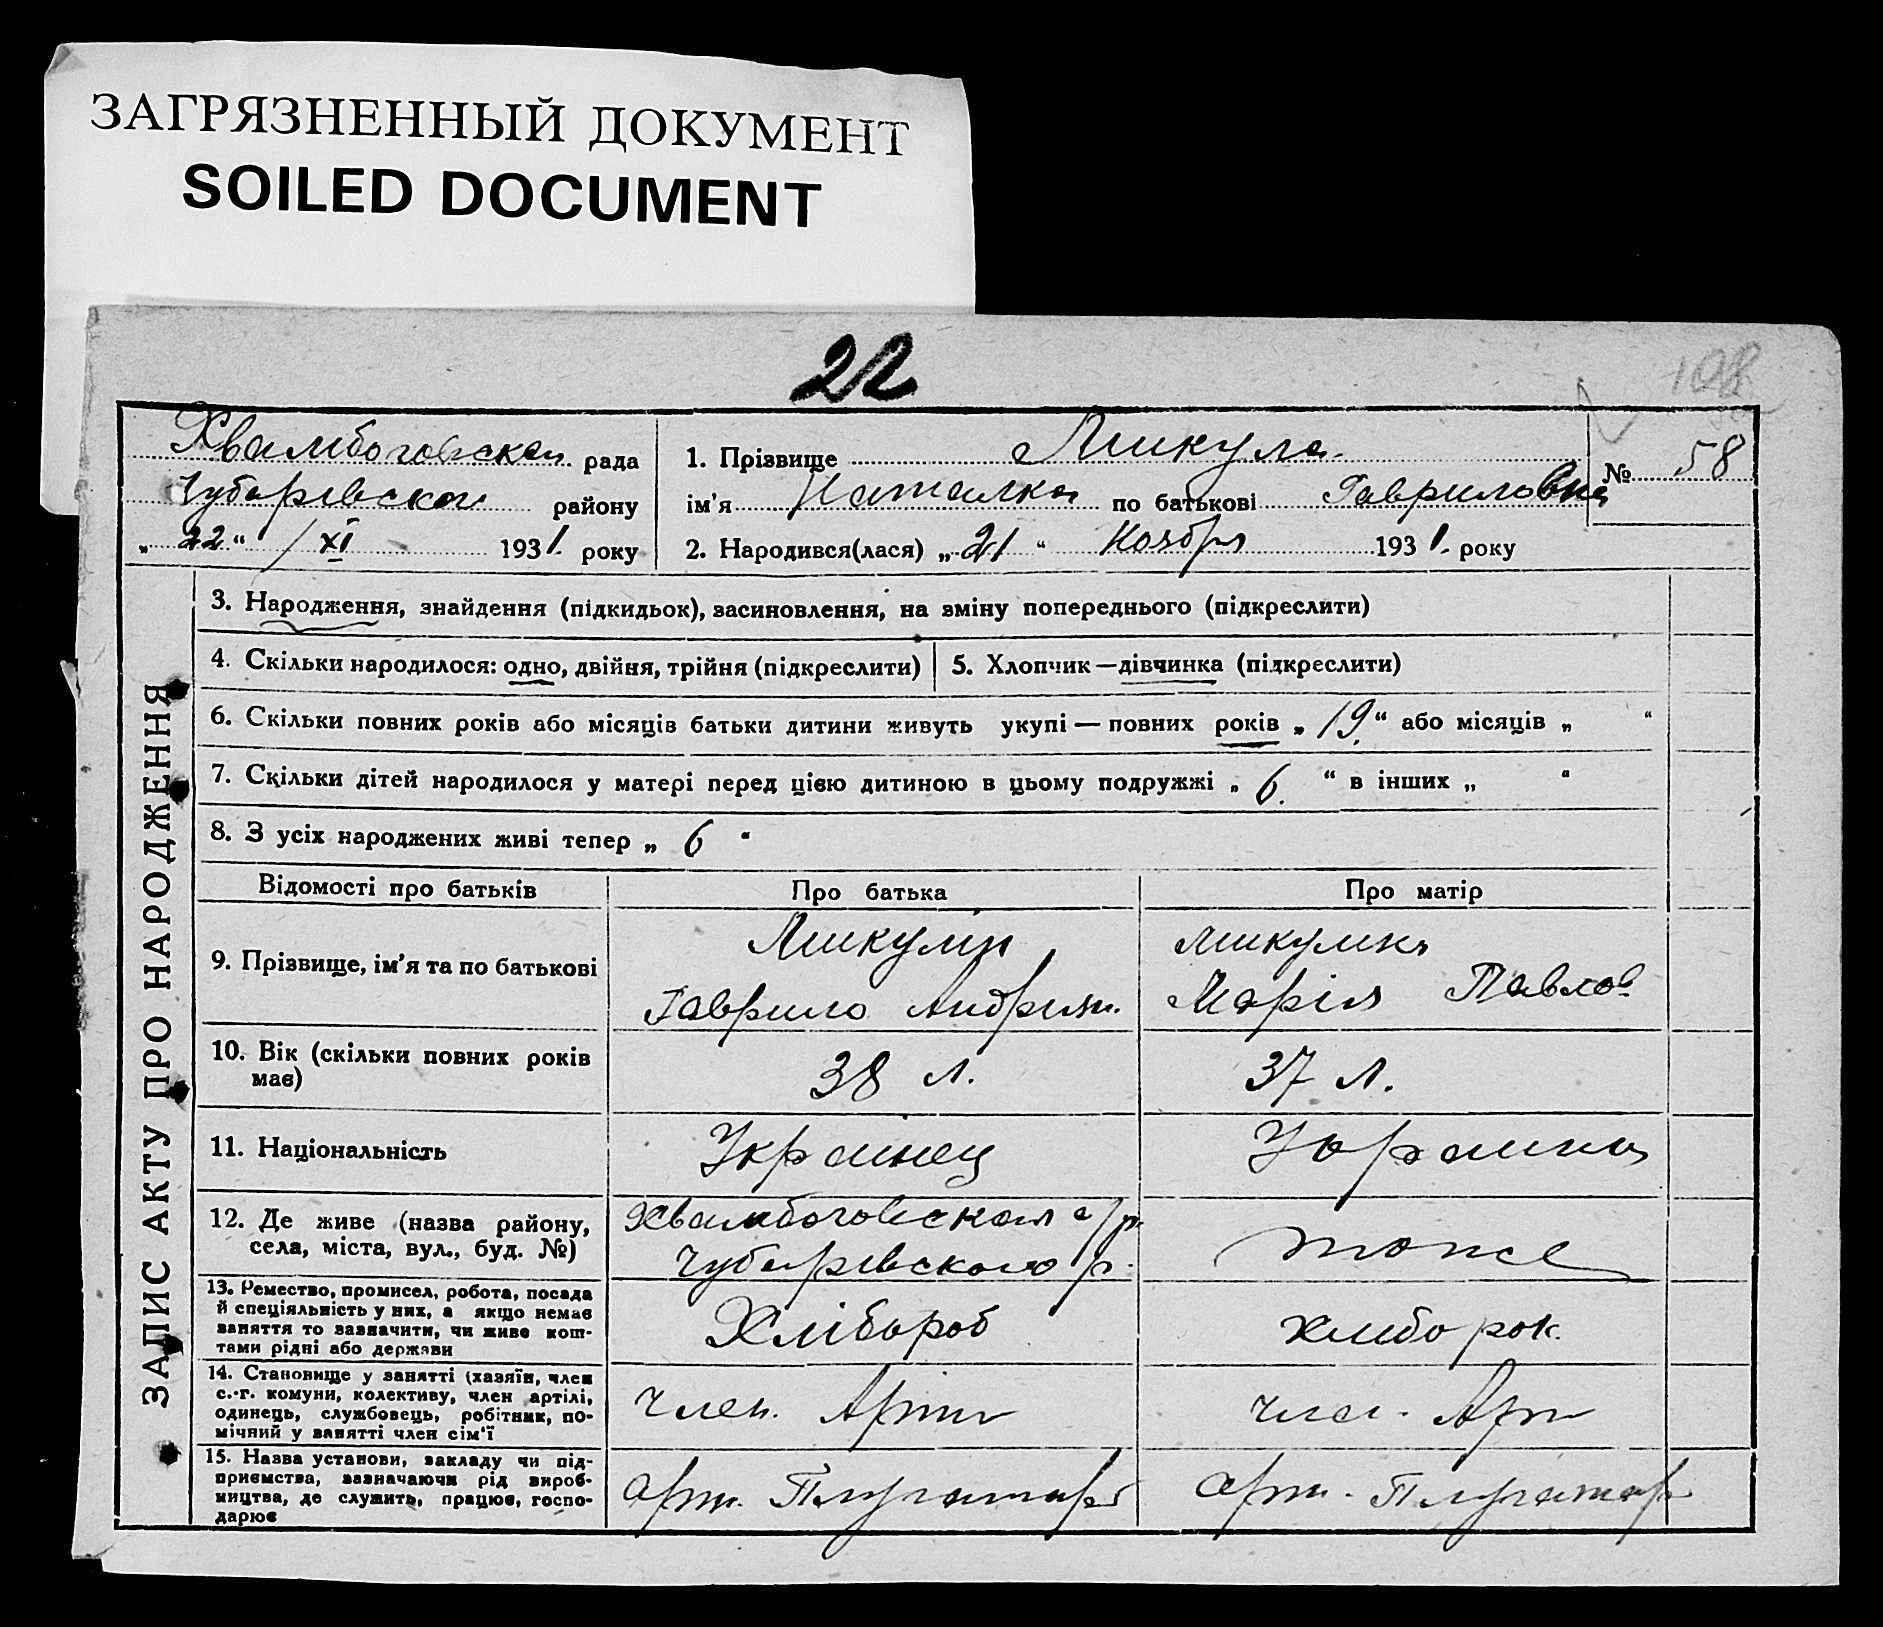 ЗАГРЯЗНЕННЫЙ ДОКУМЕНТ
SOILED DOCUMENT
22
108
Хвалибоговская рада
Чубаревского району
„ 22 “ / XI 1931. року
1. Прізвище Микула
ім'я Наталка по батькові Гавриловна
2. Народився(лася) „ 21 “ Ноября 1931. року
№ 58
ЗАПИС АКТУ ПРО НАРОДЖЕННЯ
3. Народження, знайдення (підкидьок), засиновлення, на зміну попереднього (підкреслити)
4. Скільки народилося: одно, двійня, трійня (підкреслити)
5. Хлопчик — дівчинка (підкреслити)
6. Скільки повних років або місяців батьки дитини живуть укупі — повних років „ 19 “ або місяців „ “
7. Скільки дітей народилося у матері перед цією дитиною в цьому подружжі „ 6. “ в інших „ “
8. З усіх народжених живі тепер „ 6 “
Відомості про батьків
Про батька
Про матір
9. Прізвище, ім'я та по батькові
Микулін
Гаврило Андриян.
Марія Павлов
10. Вік (скільки повних років
має)
38 л.
37 л.
11. Національність
Украинец
12. Де живе (назва району,
села, міста, вул., буд. №)
Хвалибоговская с/р.
Чубаревского р.
тоже
13. Ремество, промисел, робота, посада
й спеціяльність у них, а якщо немає
заняття то зазначити, чи живе кош-
тами рідні або держави
Хлібороб
хлибороб.
14. Становище у занятті (хазяїн, член
с.-г. комуни, колективу, член артілі,
одинець, службовець, робітник, по-
мічний у занятті член сім'ї
Член. Арти
член. Арт
15. Назва установи, закладу чи під-
приємства, зазначаючи рід вироб-
ництва, де служить, працює, госпо-
дарює
арт. Плугатарь
арт. Плугатар